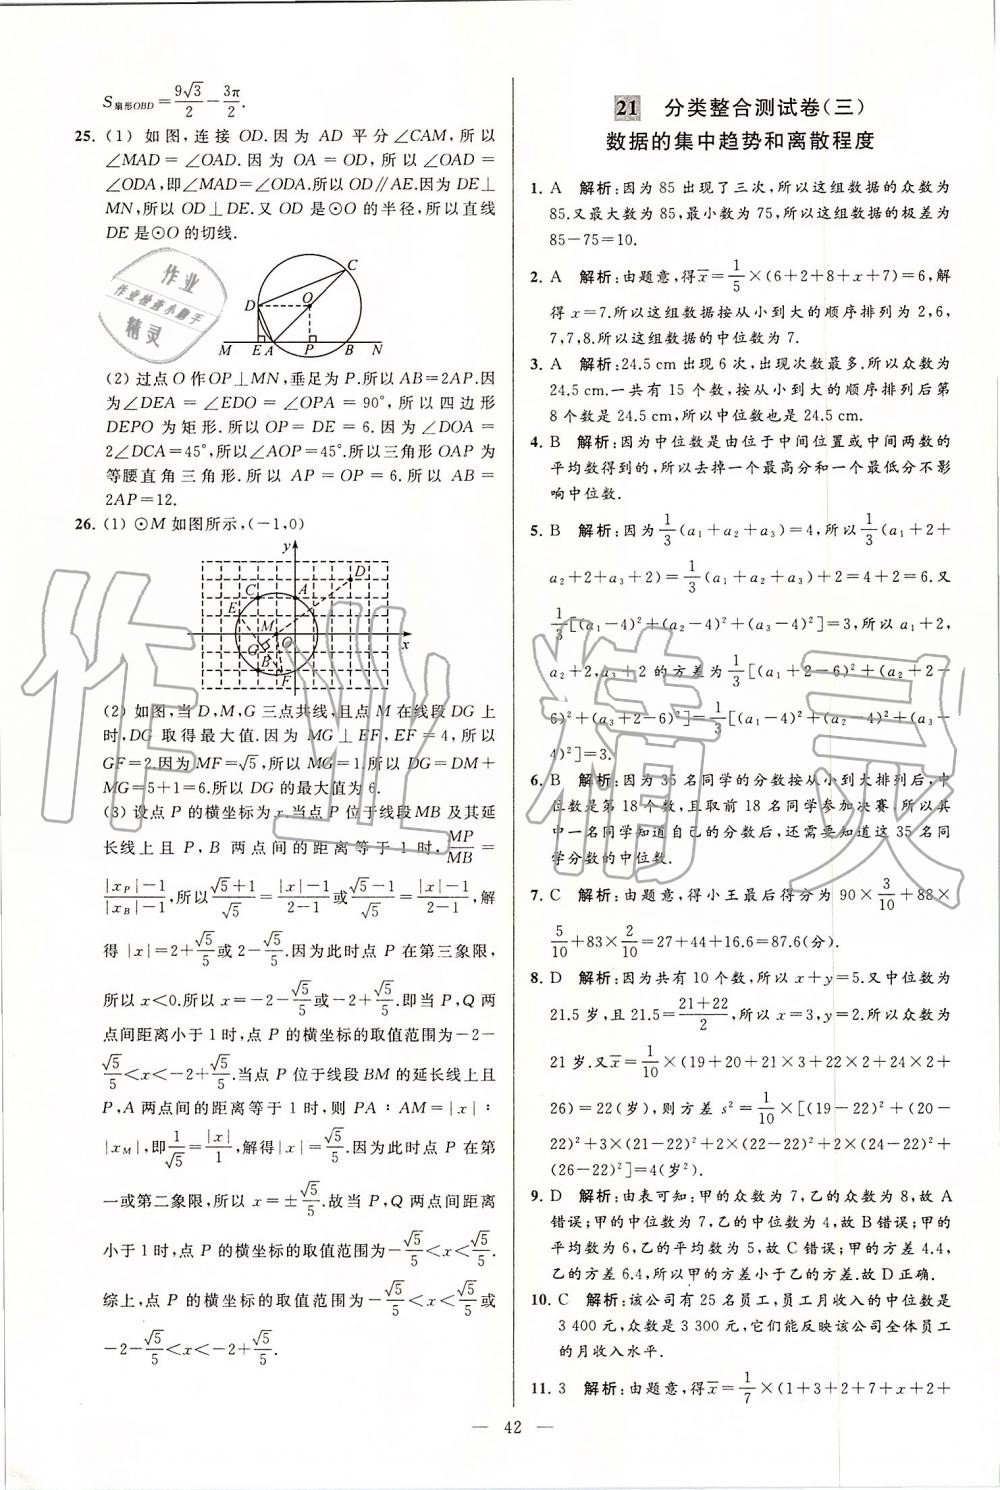 S扇形OBD=9√3/2-3π/2.
25. (1) 如图,连接 OD.因为 AD 平分∠CAM,所以
∠MAD=∠OAD.因为 OA=OD,所以∠OAD=
∠ODA,即∠MAD=∠ODA.所以 OD∥AE.因为 DE⊥
MN,所以 OD⊥DE.又 OD 是⊙O 的半径,所以直线
DE 是⊙O 的切线.
C
D
O
M
E
A
P
B
N
(2) 过点 O 作 OP⊥MN,垂足为 P.所以 AB=2AP.因
为∠DEA=∠EDO=∠OPA=90°,所以四边形
DEPO 为矩形.所以 OP=DE=6.因为∠DOA=
2∠DCA=45°,所以∠AOP=45°.所以三角形 OAP 为
等腰直角三角形.所以 AP=OP=6.所以 AB=
2AP=12.
26. (1) ⊙M 如图所示,(-1,0)
y
D
C
A
E
M
O
x
G
B
F
(2) 如图,当 D,M,G 三点共线,且点 M 在线段 DG 上
时,DG 取得最大值.因为 MG⊥EF,EF=4,所以
GF=2.因为 MF=√5,所以 MG=1.所以 DG=DM+
MG=5+1=6.所以 DG 的最大值为 6.
(3) 设点 P 的横坐标为 x.当点 P 位于线段 MB 及其延
长线上且 P,B 两点间的距离等于 1 时,MP/MB=
|xP|-1/|xB|-1,所以(√5+1)/√5=(|x|-1)/(2-1)或(√5-1)/√5=(|x|-1)/(2-1),解
得|x|=2+√5/5或2-√5/5.因为此时点 P 在第三象限,
所以 x<0.所以 x=-2-√5/5或-2+√5/5.即当 P,Q 两
点间距离小于 1 时,点 P 的横坐标的取值范围为-2-
√5/5<x<-2+√5/5.当点 P 位于线段 BM 的延长线上且
P,A 两点间的距离等于 1 时,则 PA∶AM=|x|∶
|xM|,即1/√5=|x|/1,解得|x|=√5/5.因为此时点 P 在第
一或第二象限,所以 x=±√5/5.故当 P,Q 两点间距离
小于 1 时,点 P 的横坐标的取值范围为-√5/5<x<√5/5.
综上,点 P 的横坐标的取值范围为-√5/5<x<√5/5或
-2-√5/5<x<-2+√5/5.
21 分类整合测试卷(三)
数据的集中趋势和离散程度
1. A 解析:因为 85 出现了三次,所以这组数据的众数为
85.又最大数为 85,最小数为 75,所以这组数据的极差为
85-75=10.
2. A 解析:由题意,得x̄=1/5×(6+2+8+x+7)=6,解
得 x=7.所以这组数据按从小到大的顺序排列为 2,6,
7,7,8.所以这组数据的中位数为 7.
3. A 解析:24.5 cm 出现 6 次,出现次数最多.所以众数为
24.5 cm.一共有 15 个数,按从小到大的顺序排列后第
8 个数是 24.5 cm,所以中位数也是 24.5 cm.
4. B 解析:因为中位数是由位于中间位置或中间两数的
平均数得到的,所以去掉一个最高分和一个最低分不影
响中位数.
5. B 解析:因为1/3(a₁+a₂+a₃)=4,所以1/3(a₁+2+
a₂+2+a₃+2)=1/3(a₁+a₂+a₃)+2=4+2=6.又
1/3[(a₁-4)²+(a₂-4)²+(a₃-4)²]=3,所以 a₁+2,
a₂+2,a₃+2 的方差为1/3[(a₁+2-6)²+(a₂+2-
6)²+(a₃+2-6)²]=1/3[(a₁-4)²+(a₂-4)²+(a₃-
4)²]=3.
6. B 解析:因为 35 名同学的分数按从小到大排列后,中
位数是第 18 个数,且取前 18 名同学参加决赛,所以其
中一名同学知道自己的分数后,还需要知道这 35 名同
学分数的中位数.
7. C 解析:由题意,得小王最后得分为 90×3/10+88×
5/10+83×2/10=27+44+16.6=87.6(分).
8. D 解析:因为共有 10 个数,所以 x+y=5.又中位数为
21.5 岁,且 21.5=(21+22)/2,所以 x=3,y=2.所以众数为
21 岁.又x̄=1/10×(19+20+21×3+22×2+24×2+
26)=22(岁),则方差 s²=1/10×[(19-22)²+(20-
22)²+3×(21-22)²+2×(22-22)²+2×(24-22)²+
(26-22)²]=4(岁²).
9. D 解析:由表可知:甲的众数为 7,乙的众数为 8,故 A
错误;甲的中位数为 7,乙的中位数为 4,故 B 错误;甲的
平均数为 6,乙的平均数为 5,故 C 错误;甲的方差 4.4,
乙的方差 6.4,所以甲的方差小于乙的方差.故 D 正确.
10. C 解析:该公司有 25 名员工,员工月收入的中位数是
3 400 元,众数是 3 300 元,它们能反映该公司全体员工
的月收入水平.
11. 3 解析:由题意,得x̄=1/7×(1+3+2+7+x+2+
— 42 —
作业
作业检查小助手
精灵
作业精灵